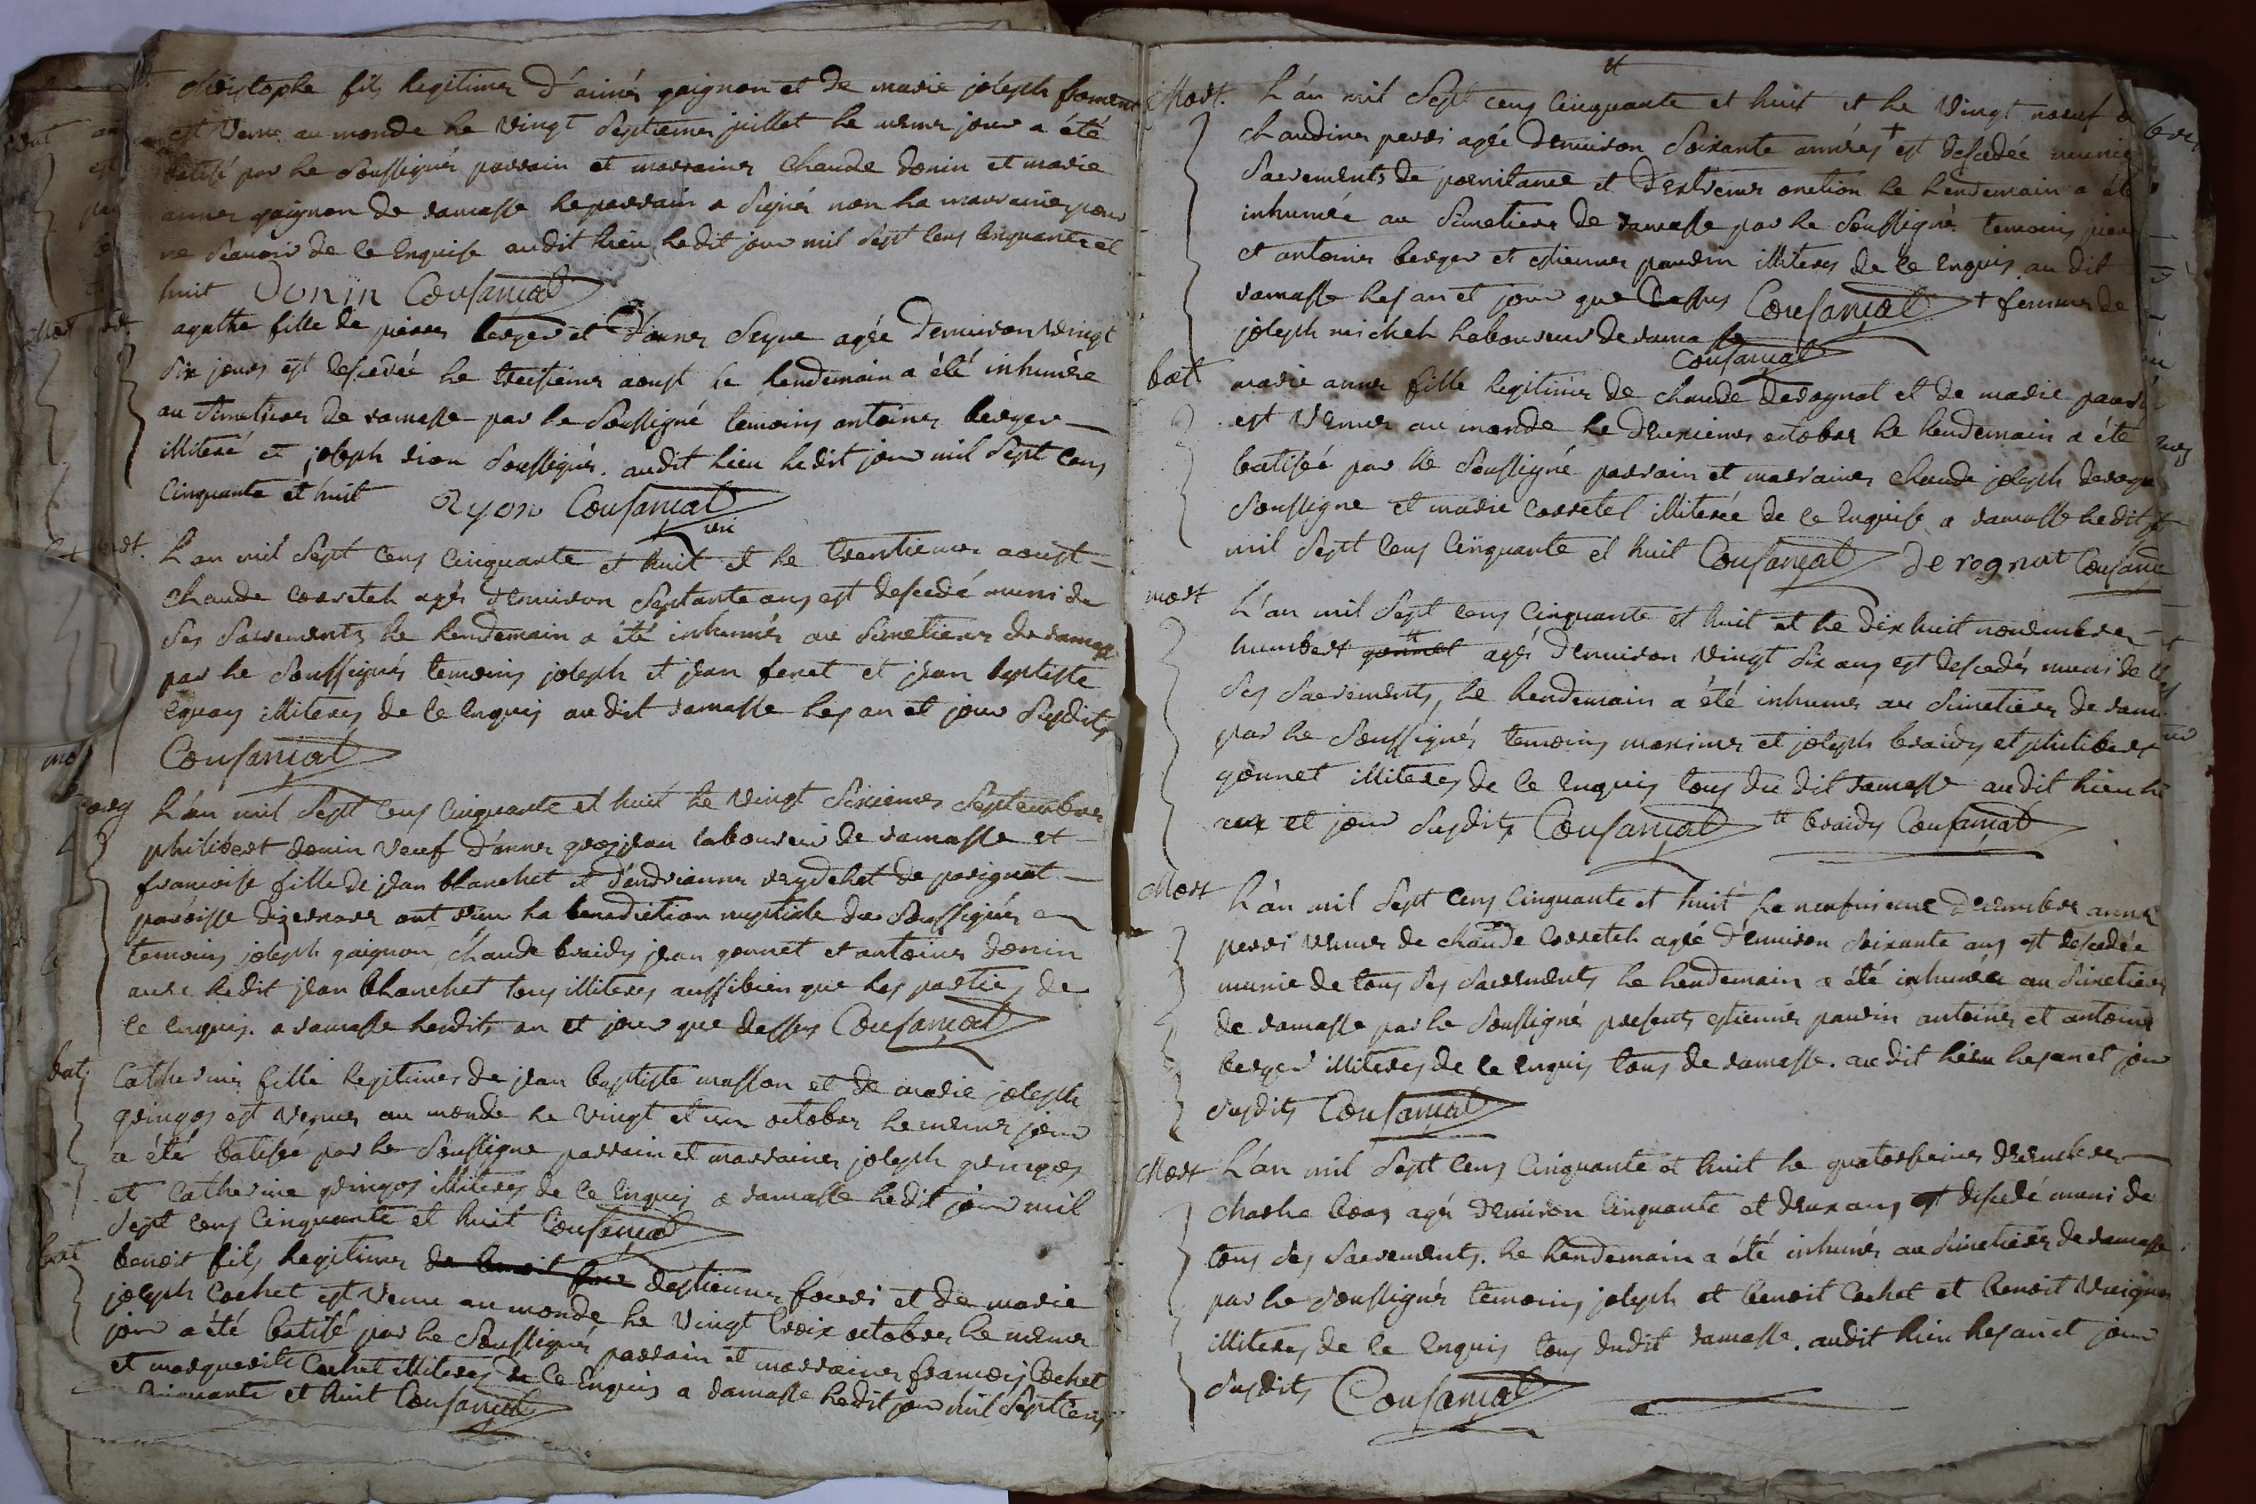 christophe fils legitime d'aimé gaignon et de marie joseph froment
est venu au monde le vingt septieme juillet le meme jour a été
batisé par le soussigné parrain et marraine claude donin et marie
anne gaignon de ramasse le parrain a signé non la marraine pour
ne scavoir de ce enquise audit lieu ledit jour mil sept cens cinquante et
huit Donin Cousançat
agathe fille de pierre berger et d'anne seyve agée denviron vingt
six jours est descedée le troisieme aoust le lendemain a été inhumée
au simetiere de ramasse par le soussigné temoins antoine berger
illiteré et joseph rion soussignés. audit lieu ledit jour mil sept cens
cinquante et huit Ryon Cousançat
mort. L'an mil sept cens cinquante et huit et le trentieme aoust
claude corretel agé denviron septante ans est descedé muni de
ses sacrements le lendemain a été inhumé au simetiere de ramasse
par le soussigné temoins joseph et jean feret et jean baptiste
illiteres de ce enquis au dit ramasse les an et jour susdits
Cousançat
L'an mil sept cens cinquante et huit le vingt sixieme septembre
philibert donin veuf d'anne grosjean laboureur de ramasse et
francoise fille de jean blanchet et d'endrianne de parignat
paroisse dizernore ont recu la benediction nuptiale du soussigné
temoins joseph gaignon, claude braidy jean gonnet et antoine donin
avec ledit jean blanchet tous illiteres aussibien que les parties de
ce enquis. a ramasse lesdits an et jour que dessus Cousançat
bat. catherine fille legitime de jean baptiste masson et de marie joseph
gringos est venue au monde le vingt et un octobre le meme jour
a été batisée par le soussigne parrain et marraine joseph gringos
et catherine gringos illiteres de ce enquis a ramasse ledit jour mil
sept cens cinquante et huit Cousançat
bat benoit fils legitime destienne fours et de marie
joseph cochet est venu au monde le vingt trois octobre le meme
jour a été batisé par le soussigné parrain et marraine francois cochet
et marguerite cochet illiteres de ce enquis a ramasse ledit jour mil sept cens
cinquante et huit Cousançat
Mort. L'an mil sept cens cinquante et huit et le vingt neuf
claudine perri agée denviron soixante années + est descedée munie
sacrements de poenitance et d'extreme onction le lendemain a été
inhumée au simetiere de ramasse par le soussigné temoins pierre
et antoine berger et estienne paurin illiteres de ce enquis au dit
ramasse les an et jour que dessus Cousançat + femme de
joseph michel laboureur de ramasse
Cousançat
bat marie anne fille legitime de claude derognat et de marie
est venue au monde le deuxieme octobre le lendemain a été
batisée par le soussigné parrain et marraine claude joseph
soussigne et marie corretel illiterée de ce enquise a ramasse ledit jr
mil sept cens cinquante et huit Cousançat derognat Cousanc
mort L'an mil sept cens cinquante et huit et le dix huit novembre
humbert gonnet # agé denviron vingt six ans est descedé muni de
ses sacrements, le lendemain a été inhumé au simetiere de
par le soussigné temoins maxime et joseph braidy et philibert
gonnet illiteres de ce enquis tous du dit ramasse audit lieu les
an et jour susdits Cousançat # braidy Cousançat
Mort L'an mil sept cens cinquante et huit le neufvieme decembre anne
perri veuve de claude corretel agée denviron soixante ans est descedée
munie de tous ses sacrements le lendemain a été inhumée au simetiere
de ramasse par le soussigné presents estienne paurin antoine et antoine
berger illiteres de ce enquis tous de ramasse. audit lieu les an et jour
susdits Cousançat
Mort L'an mil sept cens cinquante et huit le quatorsieme decembre
charle agé denviron cinquante et deux ans est descedé muni de
tous ses sacrements. le lendemain a été inhumé au simetiere de ramasse.
par le soussigné temoins joseph et benoit cochet et benoit
illiteres de ce enquis tous dudit ramasse. audit lieu les an et jour
susdits Cousançat